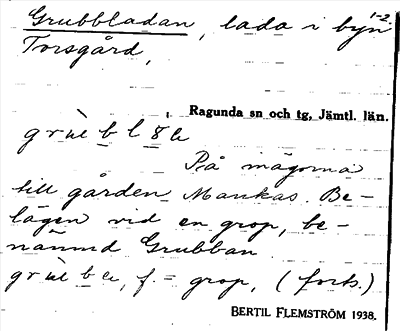 1-2.
Grubbladan, lada i byn
Torsgård,
Ragunda sn och tg, Jämtl. län.
På mägorna
till gården Maukas. Be-
lägen vid en grop, be-
nämnd Grubban
f. = grop, (forts.)
BERTIL FLEMSTRÖM 1938.